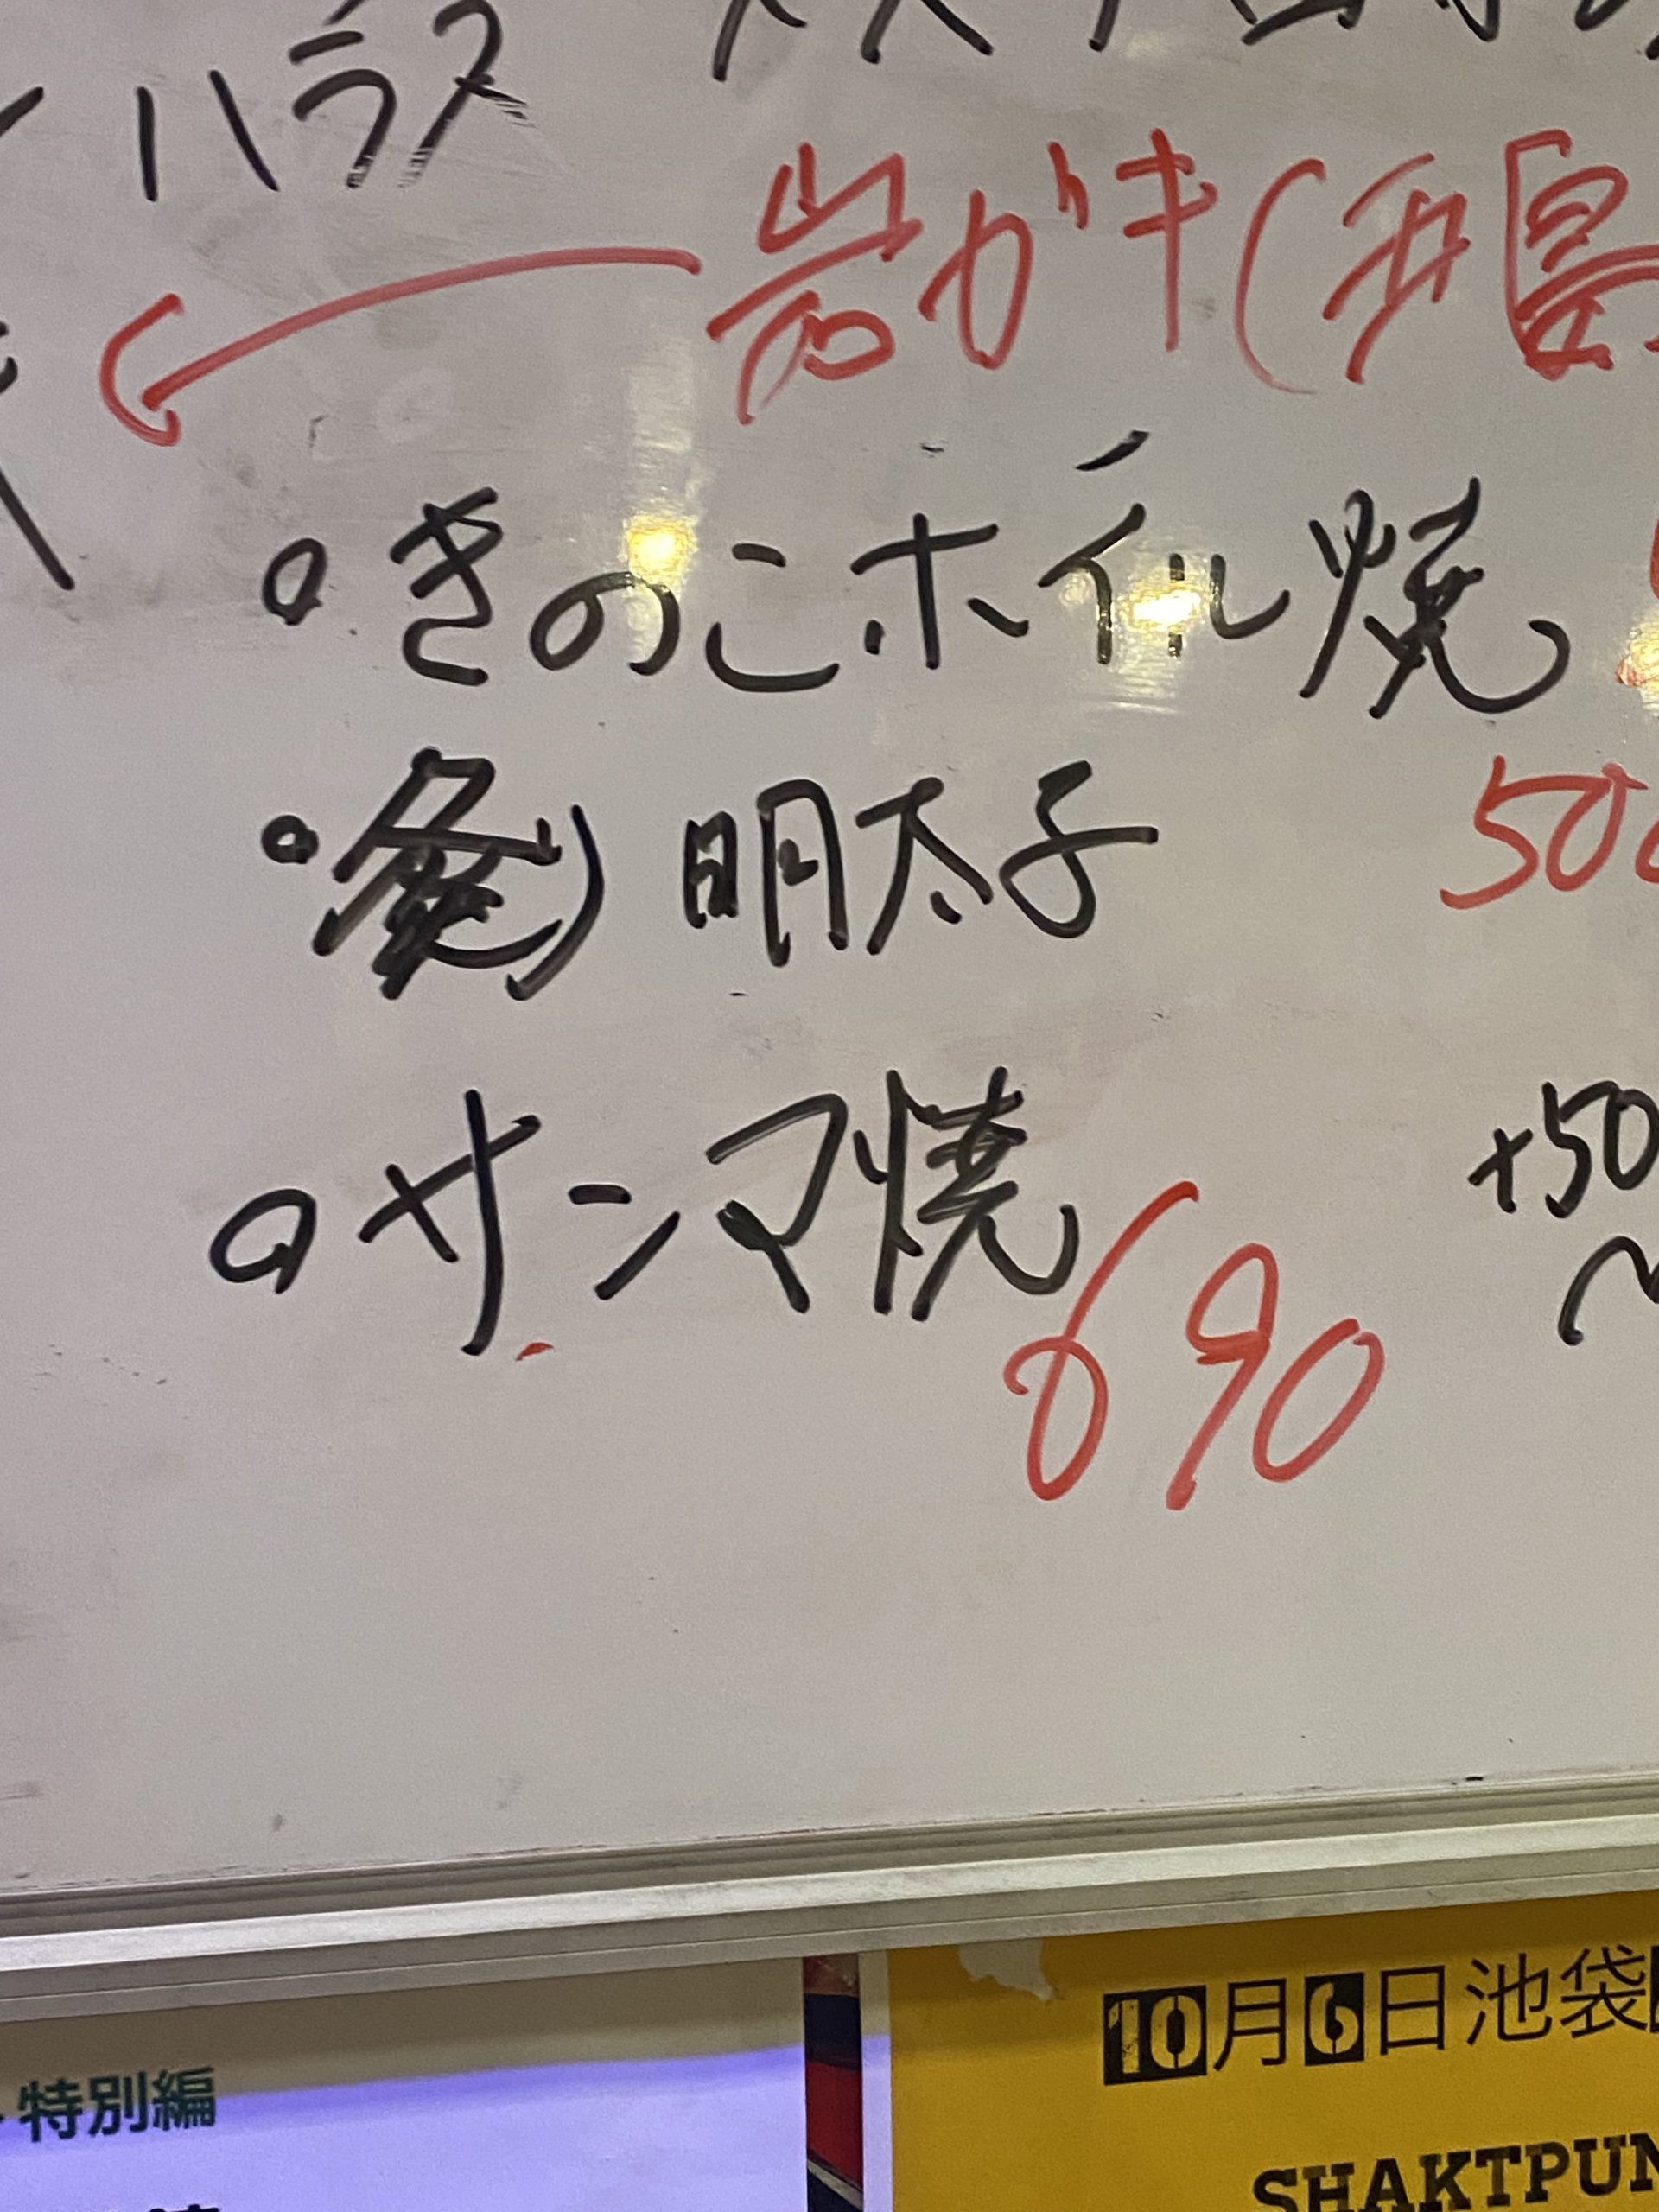 ハラス
岩ガキ(兵
・きのこホイル焼
・炙り明太子 500
・サンマ焼 690
+50
特別編
10月6日池袋
SHAKTPUN